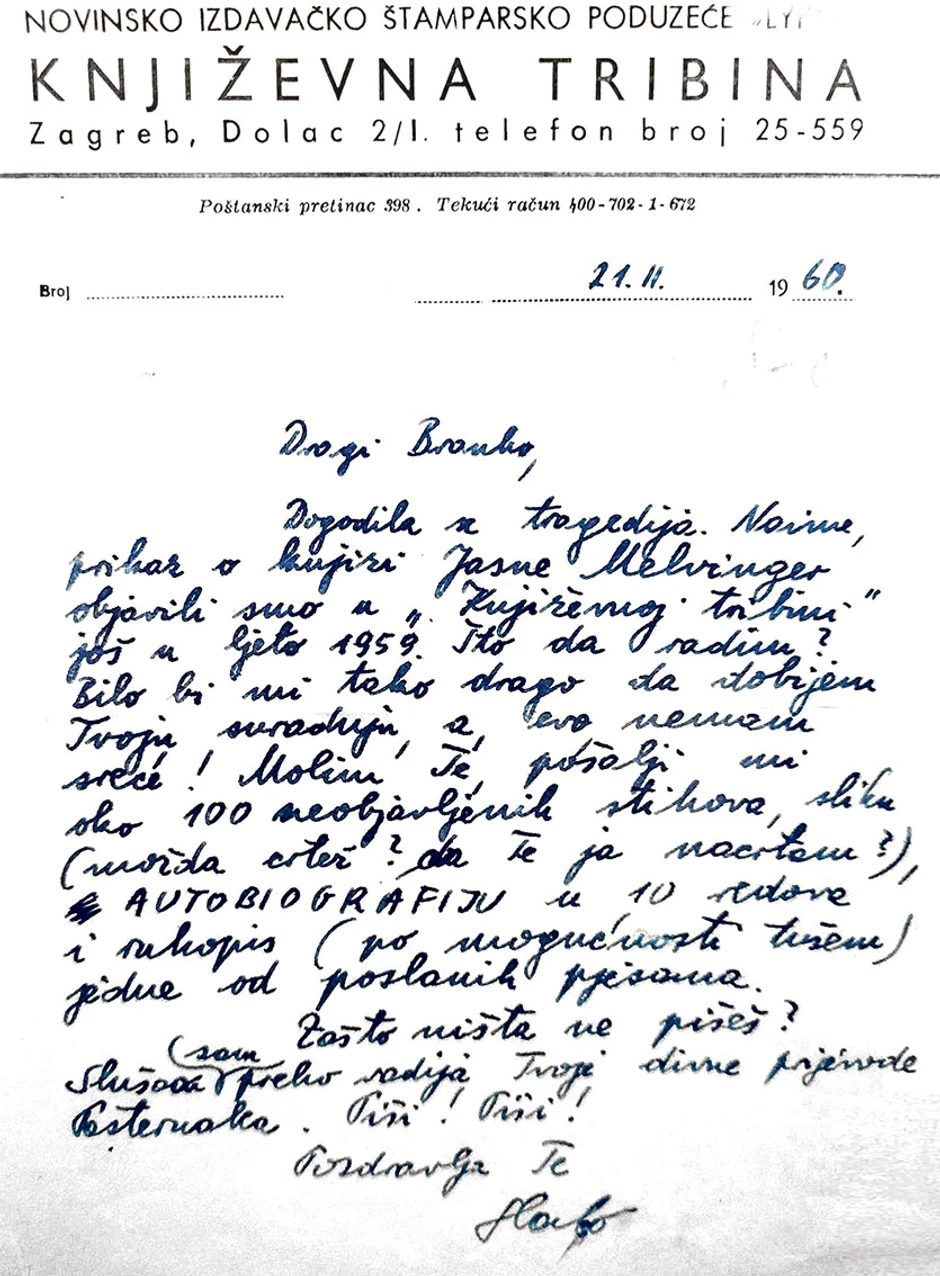 NOVINSKO IZDAVAČKO ŠTAMPARSKO PODUZEĆE
KNJIŽEVNA TRIBINA
Zagreb, Dolac 2/I. telefon broj 25-559
Poštanski pretinac 398. Tekući račun 400-702-1-672
Broj 21. II. 1960.
Dragi Branko,
Dogodila se tragedija. Naime,
prikaz o knjizi Jasne Melvinger
objavili smo u „Književnoj tribini“
još u ljeto 1959. Što da radim?
Bilo bi mi tako drago da dobijem
Tvoju suradnju, a, evo nemam
sreće! Molim Te, pošalji mi
oko 100 neobjavljenih stihova, sliku
(možda crtež? da Te ja nacrtam?),
AUTOBIOGRAFIJU u 10 redova
i rukopis (po mogućnosti tušem)
jedne od poslanih pjesama.
Zašto ništa ne pišeš?
Slušao sam preko radija Tvoje divne prijevode
Pasternaka. Piši! Piši!
Pozdravlja Te